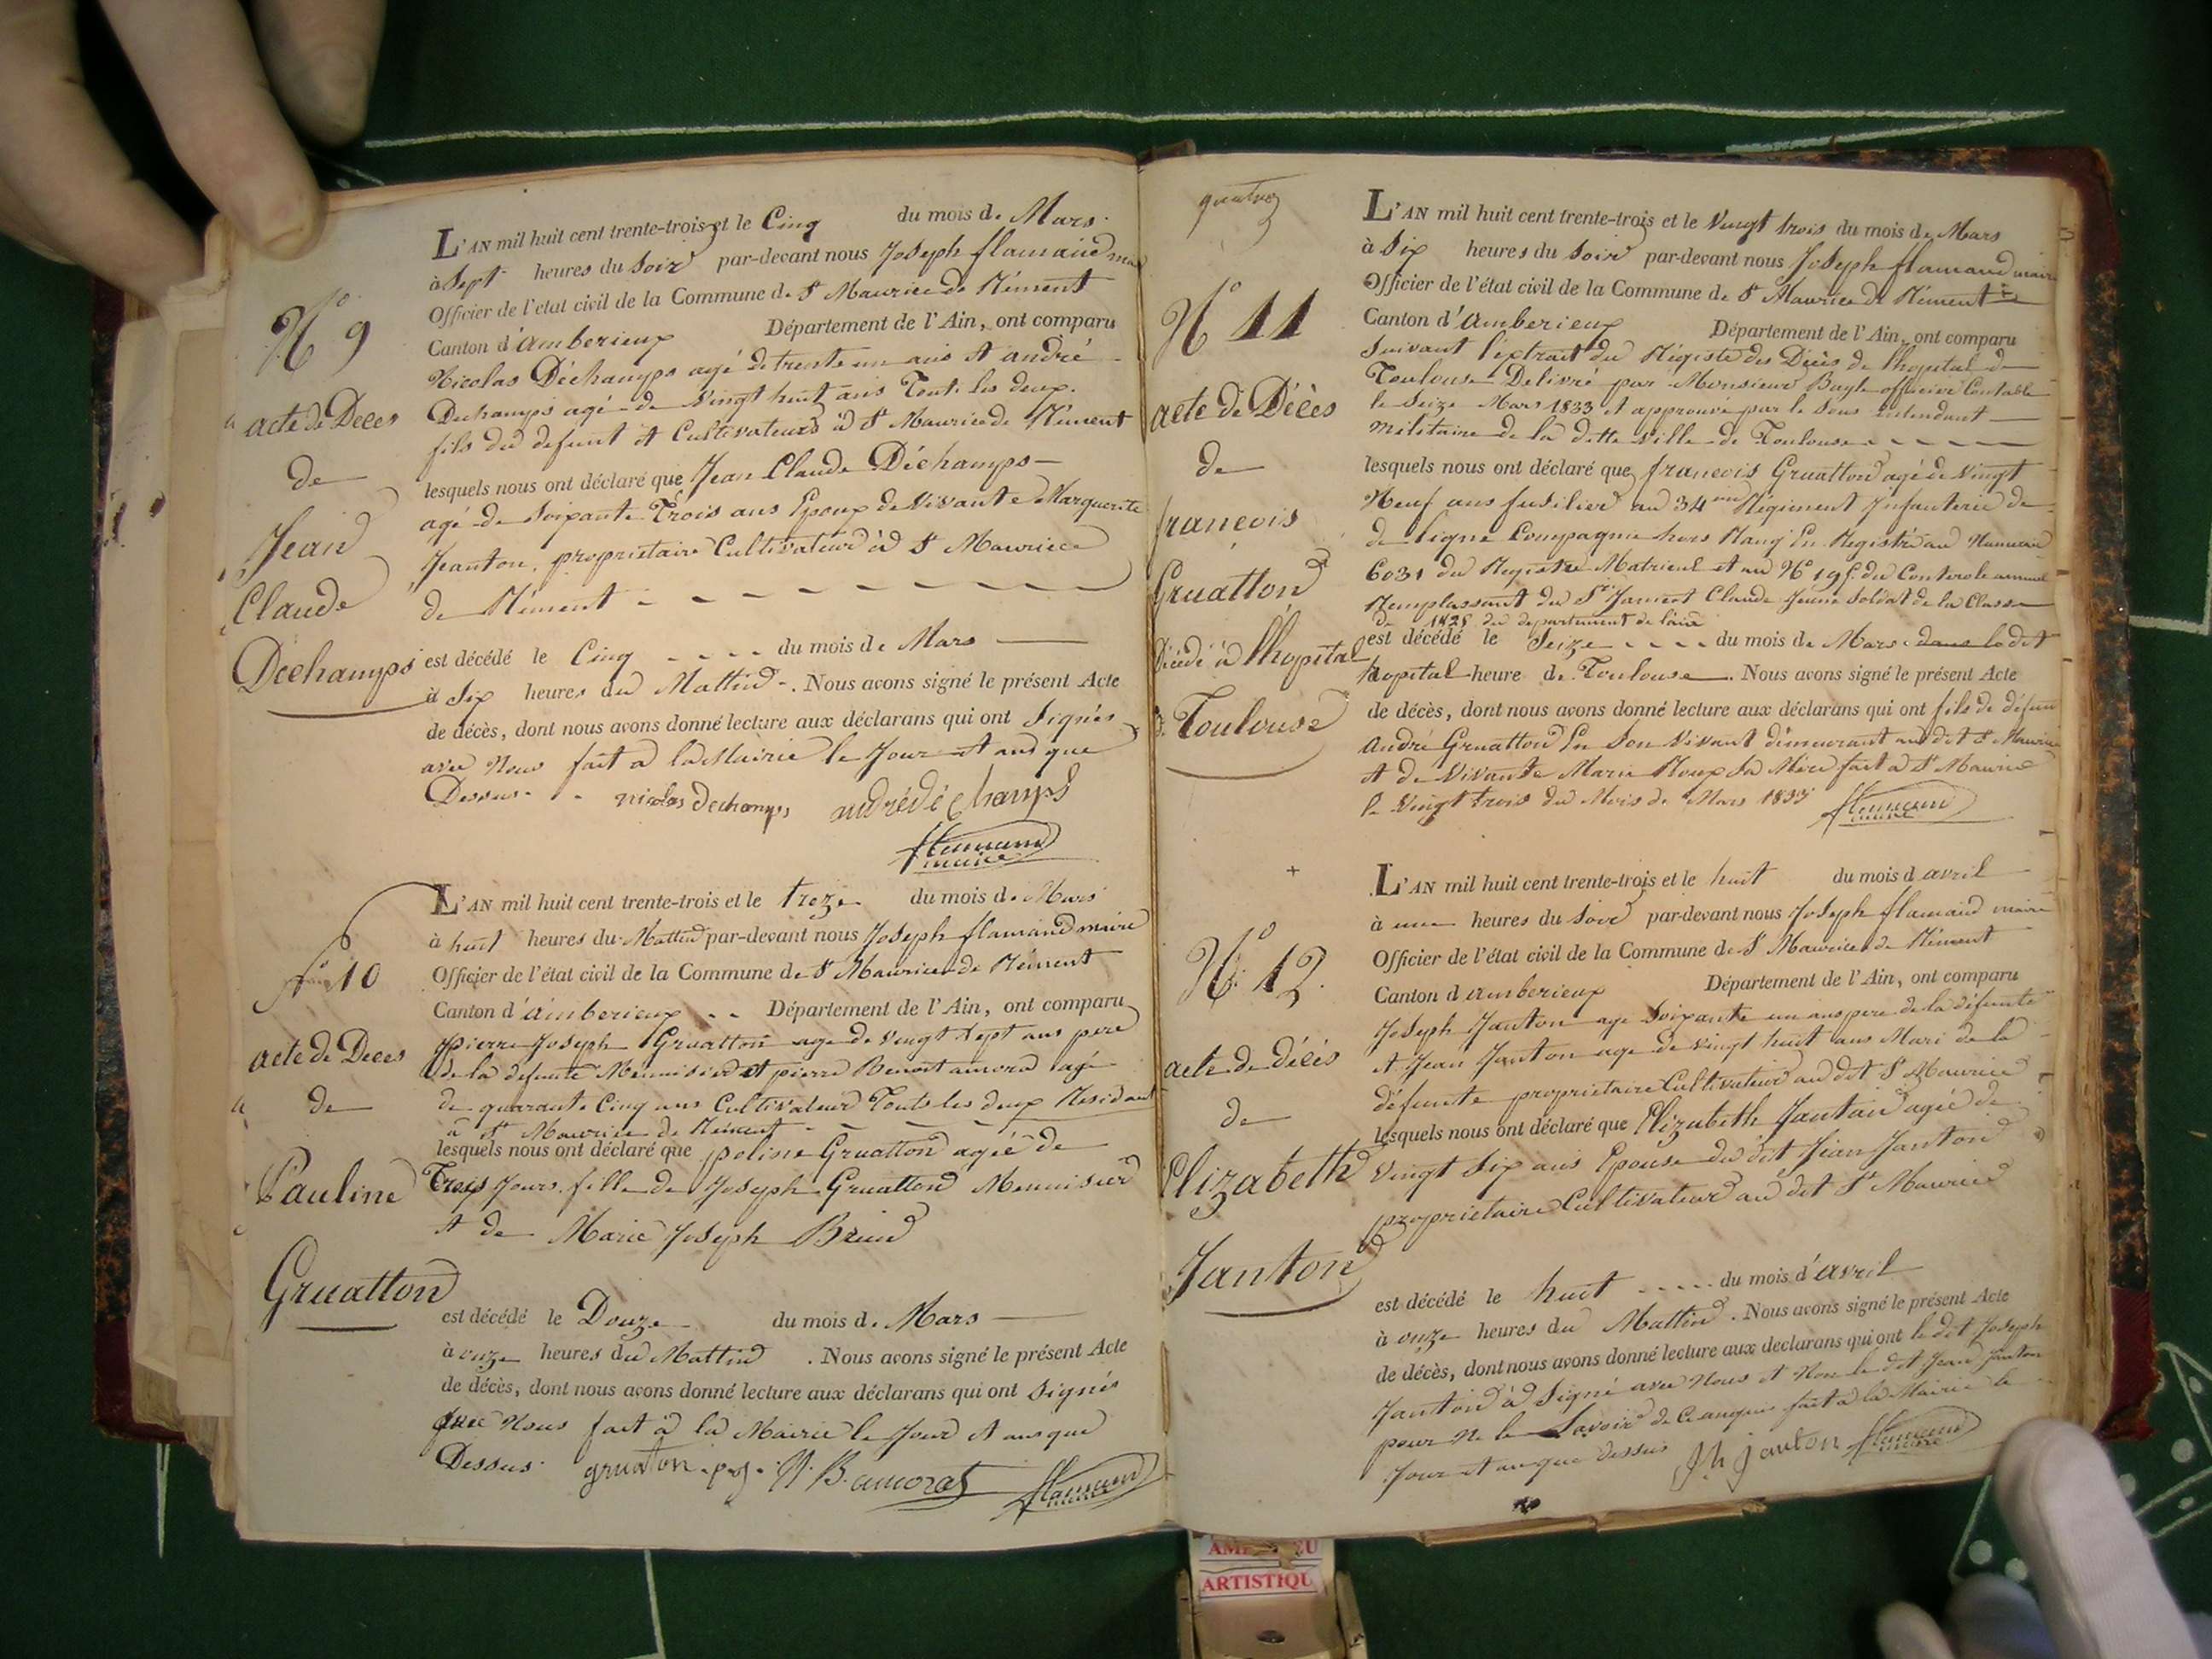 L'AN mil huit cent trente-trois et le Cinq du mois de Mars
à Sept heures du Soir par-devant nous Joseph flamand
Officier de l'état civil de la Commune de St Maurice de Rément
Canton d'amberieux Département de l'Ain, ont comparu
Nicolas Déchamps agé de trente un ans et andré
Dechamps agé de vingt huit ans Tout les deux
fils du defunt et Cultivateurs à St Maurice de Rément
lesquels nous ont déclaré que Jean Claude Déchamps
agé de Soixante Trois ans Epoux de Vivante Marguerite
Jeanton, proprietaire Cultivateur à St Maurice
de Rément
est décédé le Cinq du mois de Mars
à Six heures du Mattin. Nous avons signé le présent Acte
de décès, dont nous avons donné lecture aux déclarans qui ont Signés
avec Nous fait a la Mairie le Jour et ans que
Dessus. nicolas dechamps andré déchamps
flamand
maire
N° 9
acte de Deces
de
Jean
Claude
Dechamps
L'AN mil huit cent trente-trois et le treze du mois de Mars
à huit heures du Mattin par-devant nous Joseph flamand maire
Officier de l'état civil de la Commune de St Maurice de Rément
Canton d'amberieux Département de l'Ain, ont comparu
pierre Joseph Gruatton age de vingt sept ans pere
de la defunte Menuisier et pierre Benoit amora agé
de quarante Cinq ans Cultivateur Touts les deux Residant
à St Maurice de Rément
lesquels nous ont déclaré que poline Gruatton agée de
Trois Jours fille de Joseph Gruatton Menuisier
et de Marie Joseph
est décédé le Douze du mois de Mars
à onze heures du Mattin. Nous avons signé le présent Acte
de décès, dont nous avons donné lecture aux déclarans qui ont Signés
avec Nous fait à la Mairie le Jour et ans que
Dessus. gruatton p.j. B. amorat flamand
maire
N° 10
acte de Deces
de
Pauline
Gruatton
L'AN mil huit cent trente-trois et le Vingt trois du mois de Mars
à Six heures du Soir par-devant nous Joseph flamand maire
Officier de l'état civil de la Commune de St Maurice de Rément
Canton d'amberieux Département de l'Ain, ont comparu
Suivant l'extrait du Régiste des Décès de l'hopital de
Toulouse Delivré par Monsieur Bayle officier Contable
le Seize Mars 1833 et approuvé par le Sous intendant
Militaire de la ditte Ville de Toulouse
lesquels nous ont déclaré que francois Gruatton agé de vingt
Neuf ans fusilier au 34me Régiment Infanterie de
de ligne Compagnie hors Rang En Registré au Numero
6031 du Registre Matricul et au N° du Controle annuel
Remplassant du Sr Claude Jeune Soldat de la Classe
de du departement de l'ain
est décédé le Seize du mois de Mars dans le dit
hopital heure de Toulouse. Nous avons signé le présent Acte
de décès, dont nous avons donné lecture aux déclarans qui ont fils de défun
André Gruatton En Son Vivant démeurant au dit St Maurice
et de Vivante Marie Roux Sa Mère fait à St Maurice
le Vingt trois du Mois de Mars 1833 flamand
maire
N° 11
acte de Décès
de
francois
Gruatton
Décédé à l'hopital
de Toulouse
L'AN mil huit cent trente-trois et le huit du mois d avril
à une heures du Soir par-devant nous Joseph flamand maire
Officier de l'état civil de la Commune de St Maurice de Rément
Canton d amberieux Département de l'Ain, ont comparu
Joseph Janton age Soixante un ans pere de la défunte
et Jean Janton age de vingt huit ans Mari de la
défunte proprietaire Cultivateur au dit St Maurice
lesquels nous ont déclaré que Elizabeth Jantan agée de
Vingt Six ans Epouse du dit Jean Janton
proprietaire Cultivateur au dit St Maurice
est décédé le huit du mois d'avril
à onze heures du Mattin. Nous avons signé le présent Acte
de décès, dont nous avons donné lecture aux declarans qui ont le dit Joseph
Janton à Signé avec Nous et Non le dit Jean Janton
pour Ne le Savoir de Ce enquis fait à la Mairie le
Jour et an que dessus Jh janton flamand
maire
N° 12.
acte de décès
de
Elizabeth
Janton
ARTISTIQU